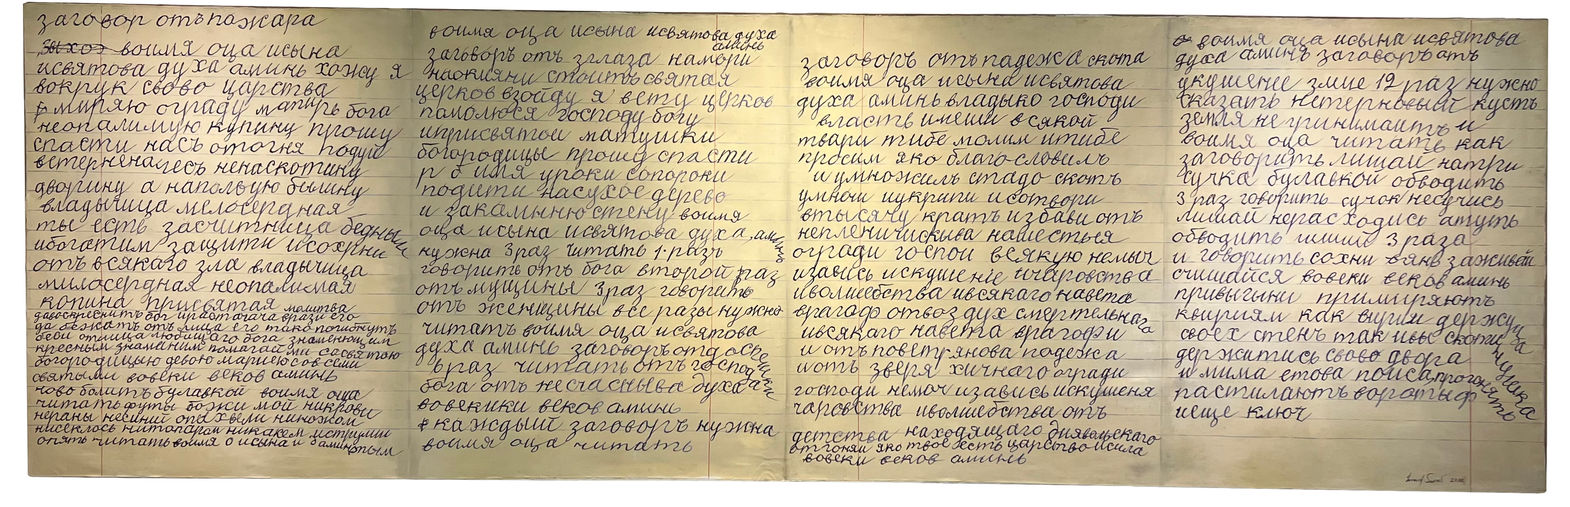 заговор отъ пажара
воимя оца исына
исвятова духа аминь хожу я
вокрук свово царства
миряю ограду матирь бога
неопалимую купину прошу
спасти насъ отогня
ненаскотину
дворину а напольвую былину
владычица мелосердная
ты есть засчитница бедным
ибогатим защити исохрани
отъ всякаго зла владычица
милосердная неопалимая
копина присвятая молитва
да бежать отъ лица его тако погибнутъ
беси отлица любящаго бога знаменующим
красным знаминим помагай ми сасвятою
богородицею девою мариею ов семи
святыми вовеки веков аминь
чово болитъ булавкой воимя оца
читать футы божи мой никрови
нераны неединй опухвели ниножом
опять читать воимя о исына и д аминь
воимя оца исына исвятова духа
аминь
заговоръ отъ зглаза намори
наокияни стоитъ святая
церков взойду я вету церков
памолюся господу богу
иприсвятой матушки
богородицы прошу спасти
р б имя уроки сопороки
подити насухое дерево
и закамнную стену воимя
оца исына исвятова духа аминь
нужна 3 раз читать 1-разъ
говорить отъ бога второй раз
отъ мущины 3 раз говорить
отъ женщины все разы нужно
читатъ воимя оца исвятова
духа аминь заговоръ отд
раз читать отъ господа
бога отъ несчасныва духа
вовекики веков аминь
каждый заговоръ нужна
воимя оца читать
заговоръ отъ падежа скота
воимя оца исына исвятова
духа аминь владыко господи
власть имеии всякой
твари тибе молим итибе
просим яко благословилъ
и умножилъ стадо скотъ
умнои иукрапи исотвори
втысячу кратъ избави отъ
непленичискыва нашестья
огради госпои всякую немыч
изависъ искушение ичаровства
иволшебства ивсякаго навета
врагаф отвоз дух смертельнаго
ивсякаго навета врагофи
и отъ поветрянова подежа
иотъ зверя хичнаго огради
господи немоч изависъ искушеня
чаровства иволшебства отъ
детства находящаго диявольскаго
отгоняи яко твое есть царство исила
вовеки веков аминь
воимя оца исына исвятова
духа аминь заговоръ отъ
укушение змие 12 раз нужно
сказать нетерновый кустъ
земля непринимаитъ и
воимя оца читать как
заговоритъ лишай натри
сучка булавкой обводить
3 раз говорить сучок несучись
лишай нерасходись атутъ
обводить лишай 3 раза
и говорить сохни вянь заживай
счищайся вовеки веков аминь
привычыни примиряютъ
квириям как вирии держу
своех стенъ так ивы скотина
держитись свово двора
имима етова поиса прогонить
растилаютъ воротыф
иеще ключ